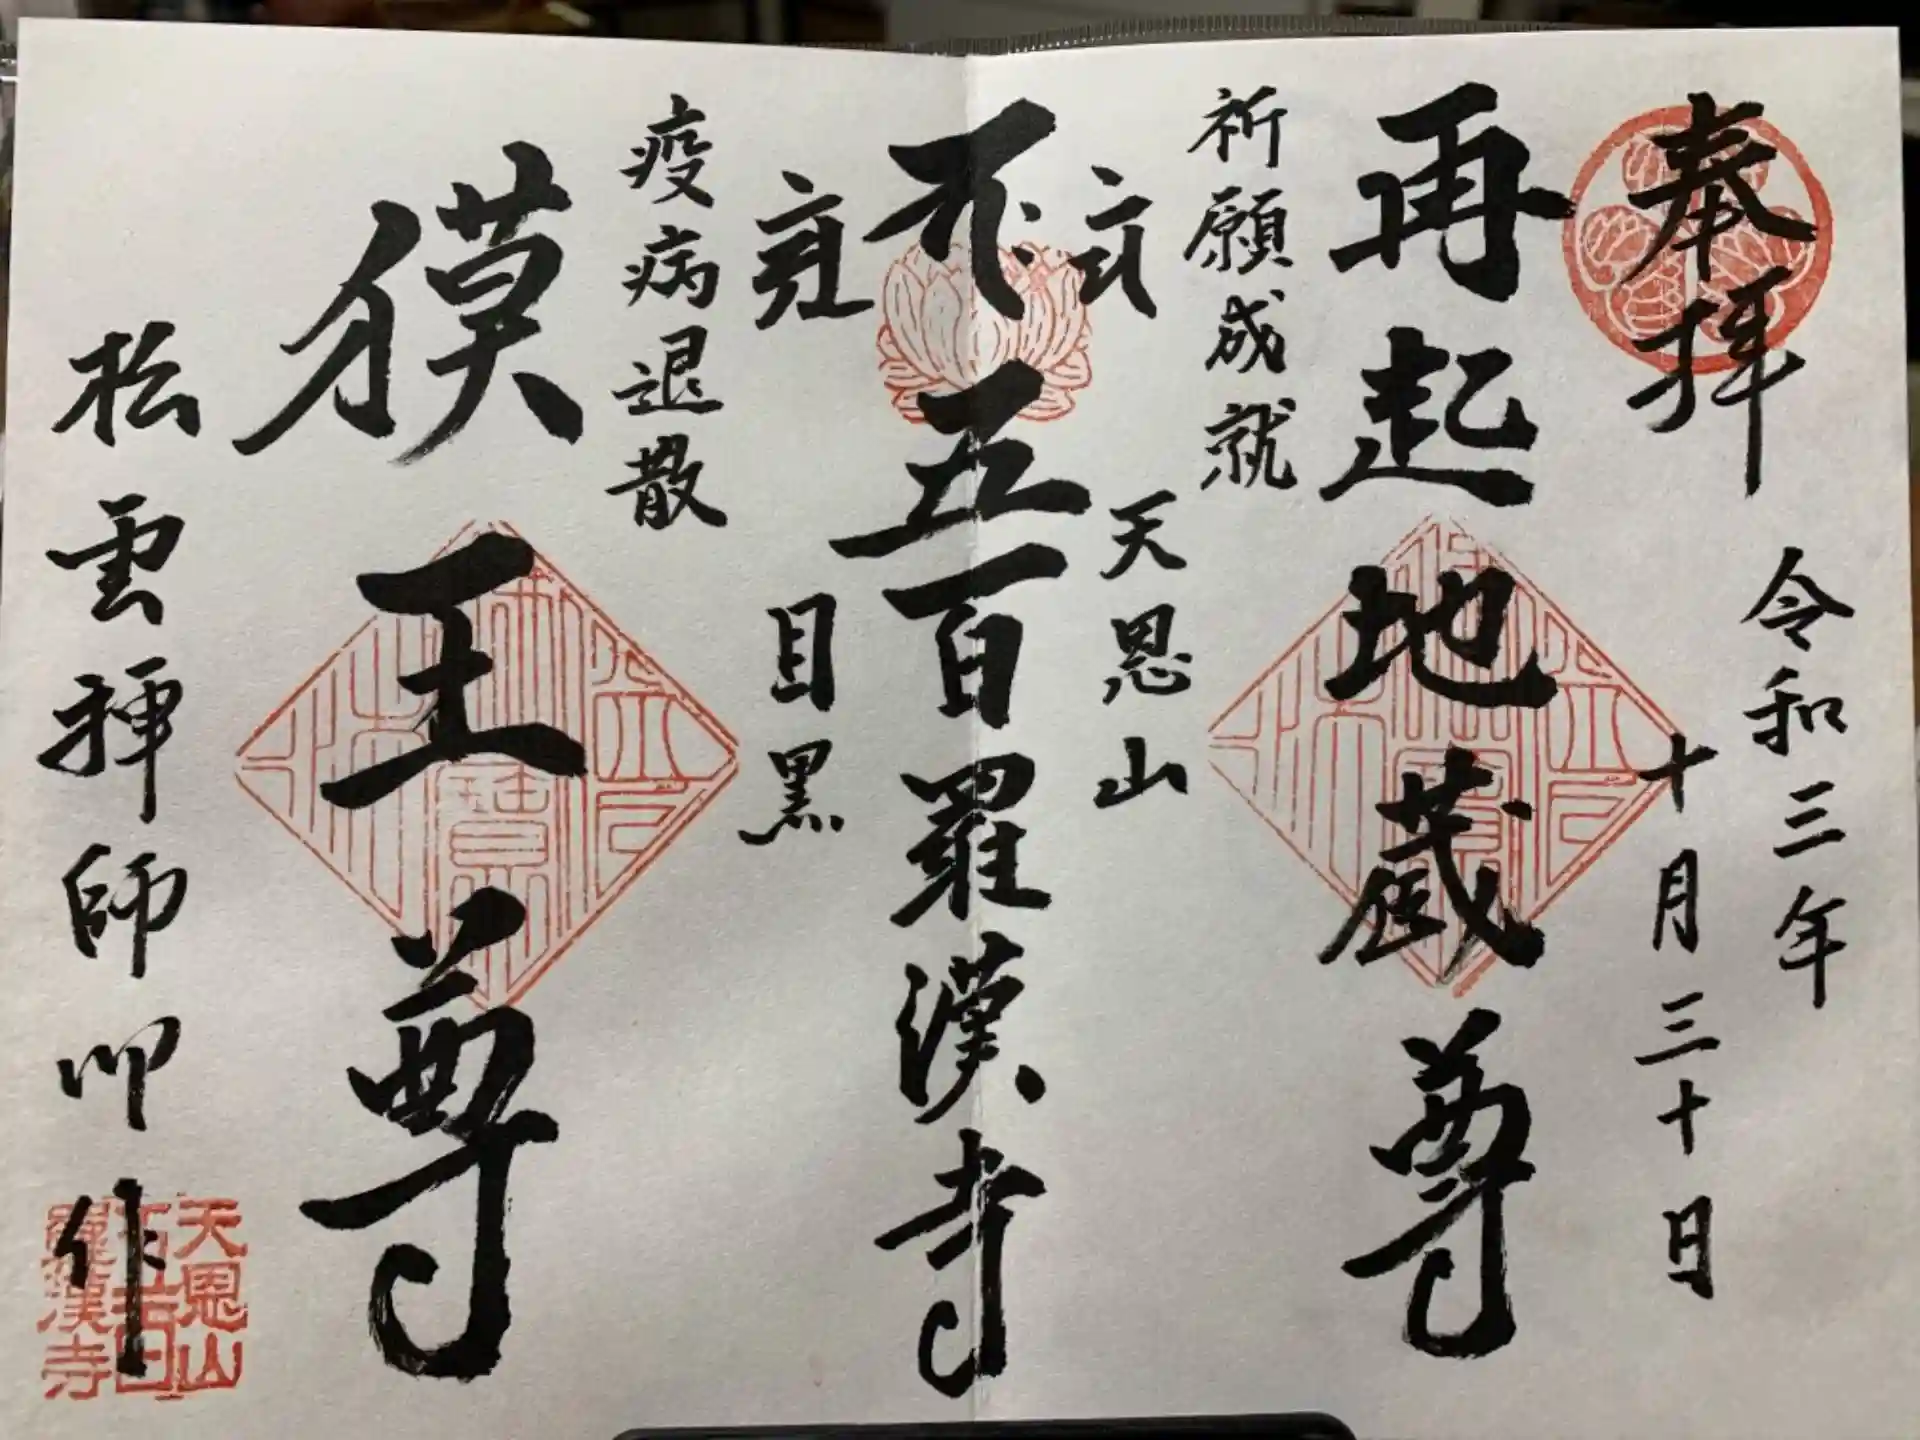 奉拝
令和三年
十月三十日
再起地蔵尊
祈願成就
天恩山
五百羅漢寺
目黒
疫病退散
獏王尊
松雲禅師
作
天恩山
五百
羅漢寺